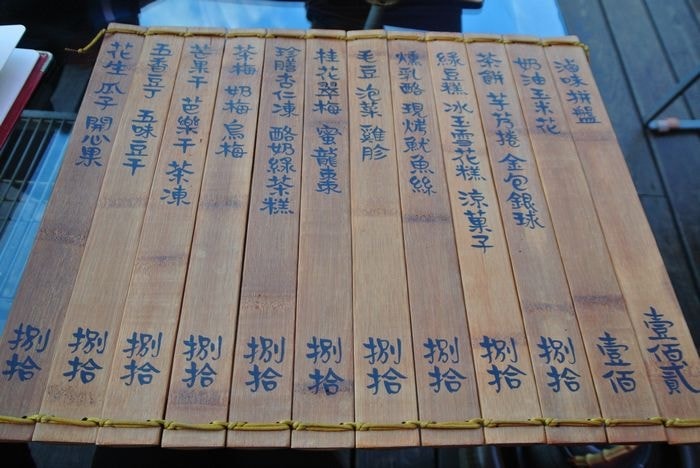 滷味拼盤 壹佰貳
奶油玉米花 壹佰
茶餅 芋艿捲 金包銀球 捌拾
綠豆糕 冰玉雪花糕 涼菓子 捌拾
燻乳酪 現烤魷魚絲 捌拾
毛豆 泡菜 雞胗 捌拾
桂花翠梅 蜜龍棗 捌拾
珍膳杏仁凍 酪奶綠茶糕 捌拾
茶梅 奶梅 烏梅 捌拾
芒果干 芭樂干 茶凍 捌拾
五香豆干 五味豆干 捌拾
花生 瓜子 開心果 捌拾